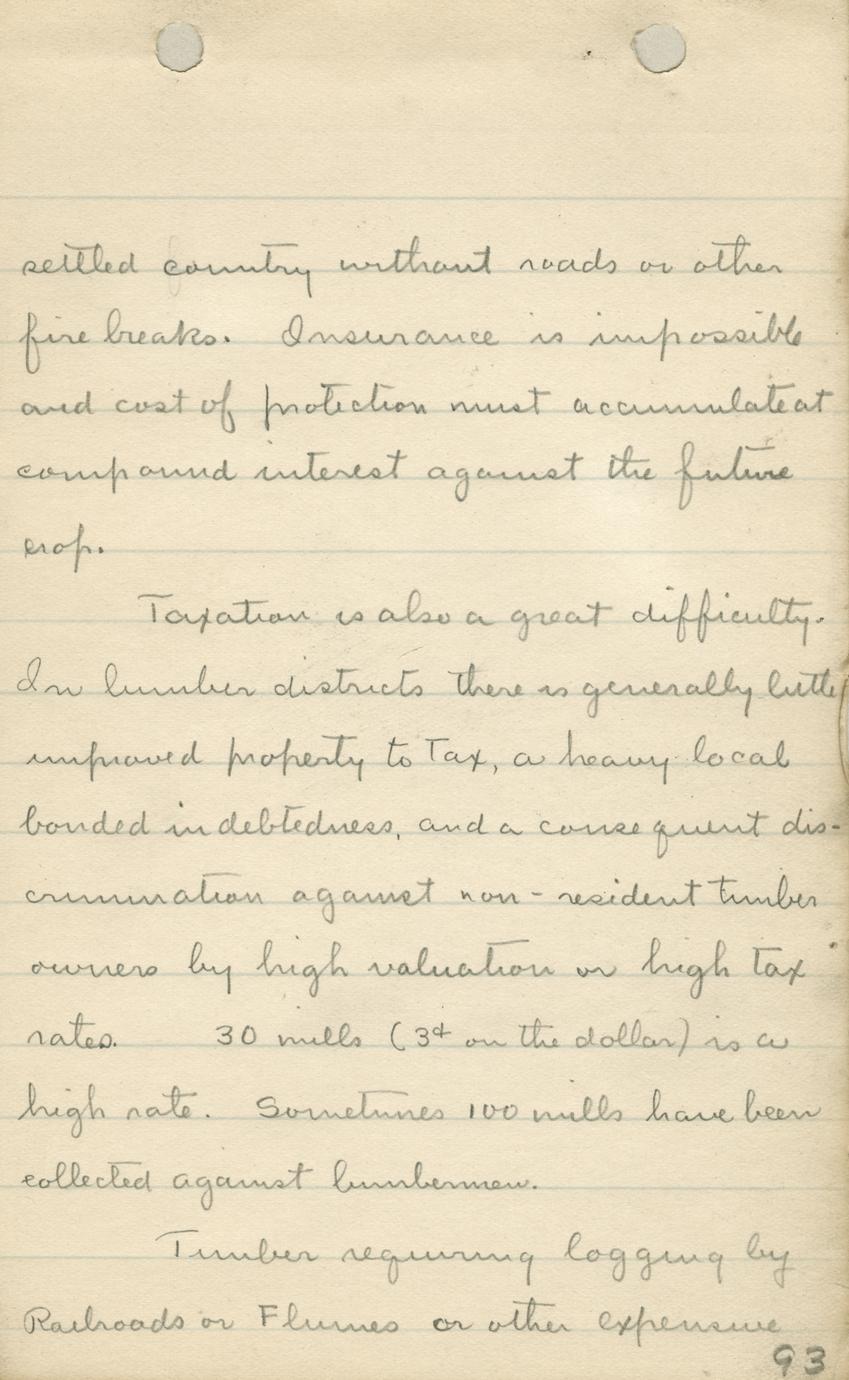 settled country without roads or other
fire breaks. Insurance is impossible
and cost of protection must accumulate at
compound interest against the future
crop.
Taxation is also a great difficulty.
In lumber districts there is generally little
improved property to Tax, a heavy local
bonded indebtedness, and a consequent dis-
crimination against non-resident timber
owners by high valuation or high tax
rates. 30 mills (3¢ on the dollar) is a
high rate. Sometimes 100 mills have been
collected against lumbermen.
Timber requiring logging by
Railroads or Flumes or other expensive
93